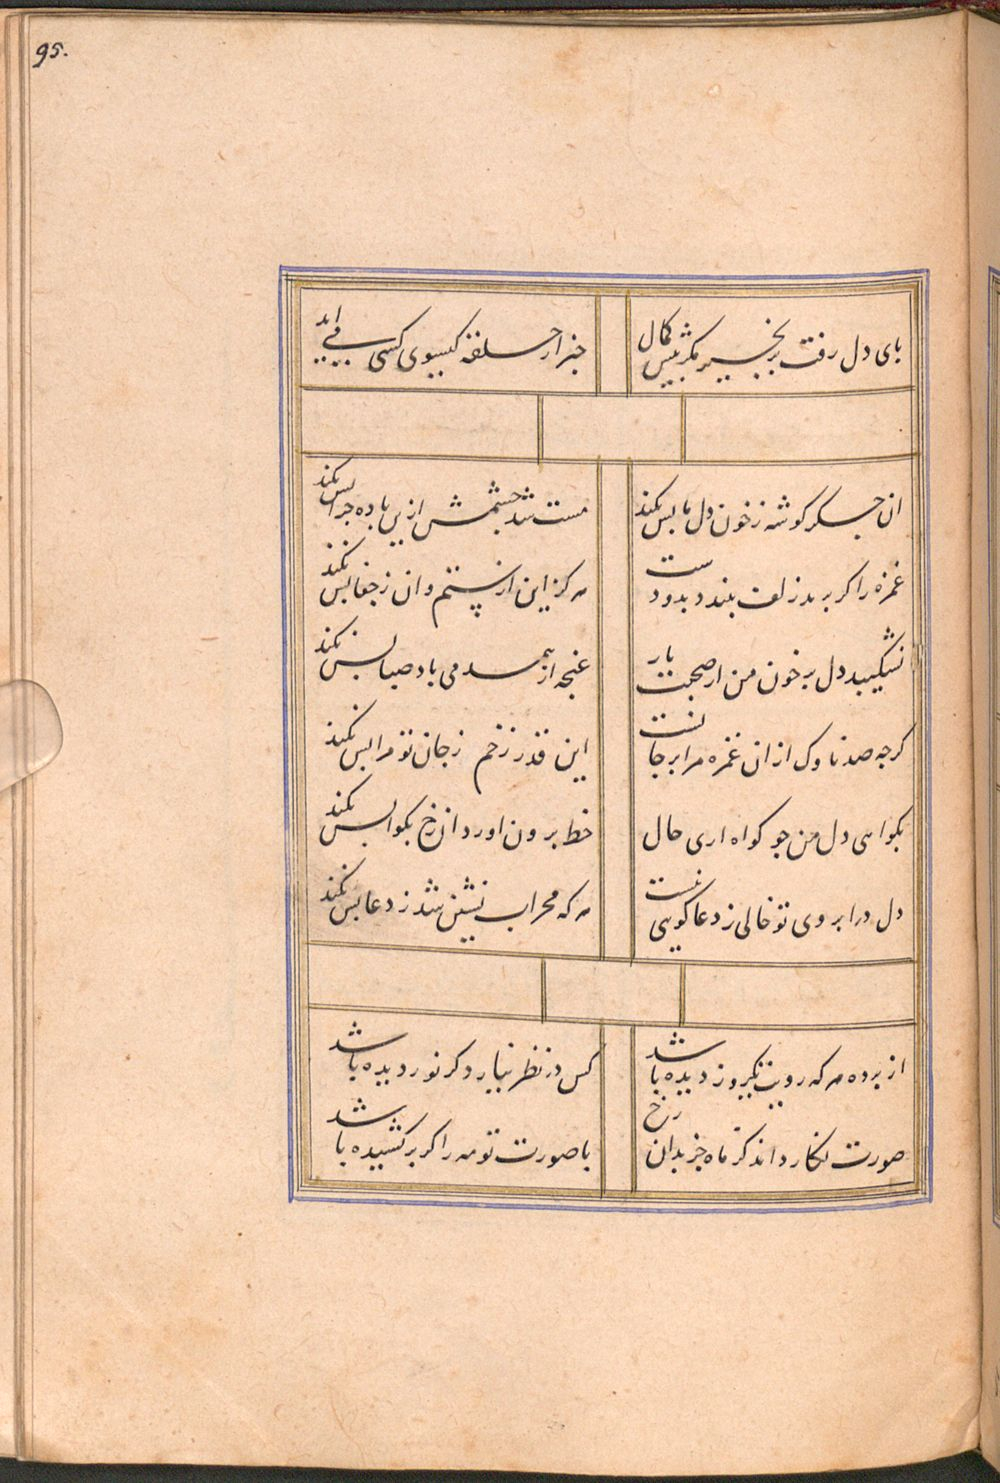 95.
بای دل رفت بزنجیر مکر بیش کمال
جز از حلقه کیسوی کسی می اید
ان جکر کوشه ز خون دل ما بس نکند
مست شد چشمش ازین باده چرا بس نکند
غمزه را کر برسد زلف ببندد بدو دست
هر کز این از ستم و ان ز جفا بس نکند
نشکیبد دل بر خون من از صحبت یار
غنجه از همدمی باد صبا بس نکند
کرجه صد ناوک از ان غمزه مرا بر جانست
این قدر زخم ز جان تو مرا بس نکند
بکواهی دل من جو کواه اری خال
خط برون اورد ان رخ بکوا بس نکند
دل در ابروی تو خالی ز دعا کویی نیست
هر که محراب نشین شد ز دعا بس نکند
از برده هر که رویت یکروز دیده باشد
کس در نظر نیارد کر نور دیده باشد
صورت نکار داند کز ماه جربدان رخ
با صورت تو مه را کر برکشیده باشد